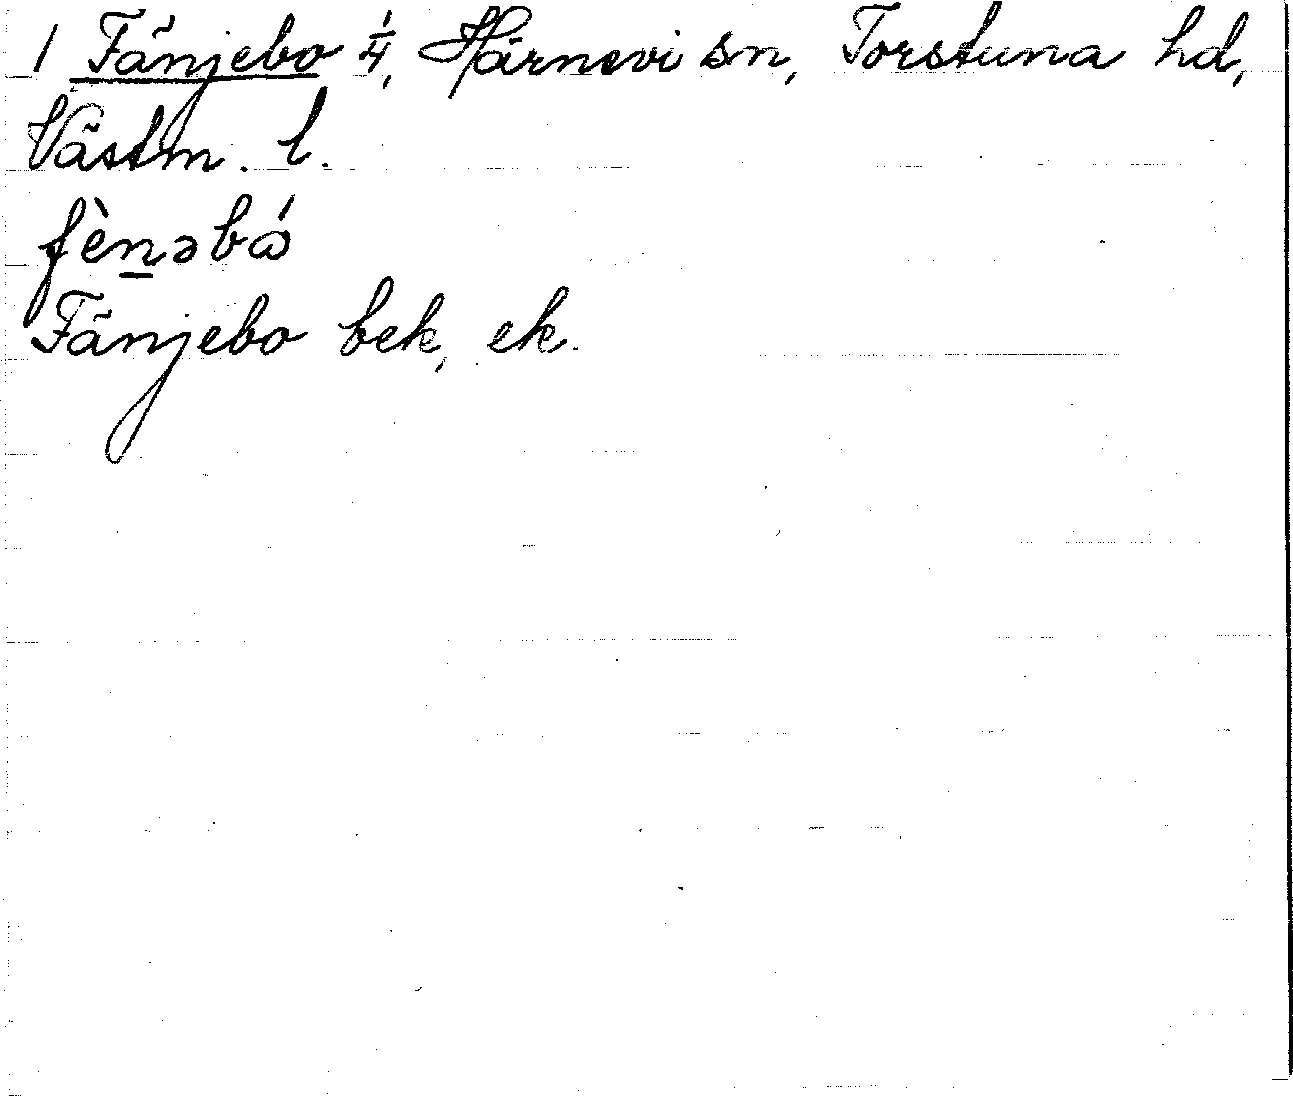 1 Fänjebo 1/4, Härnevi sn, Torstuna hd,
Västm. l.
fènəbó
Fänjebo bek, ek.